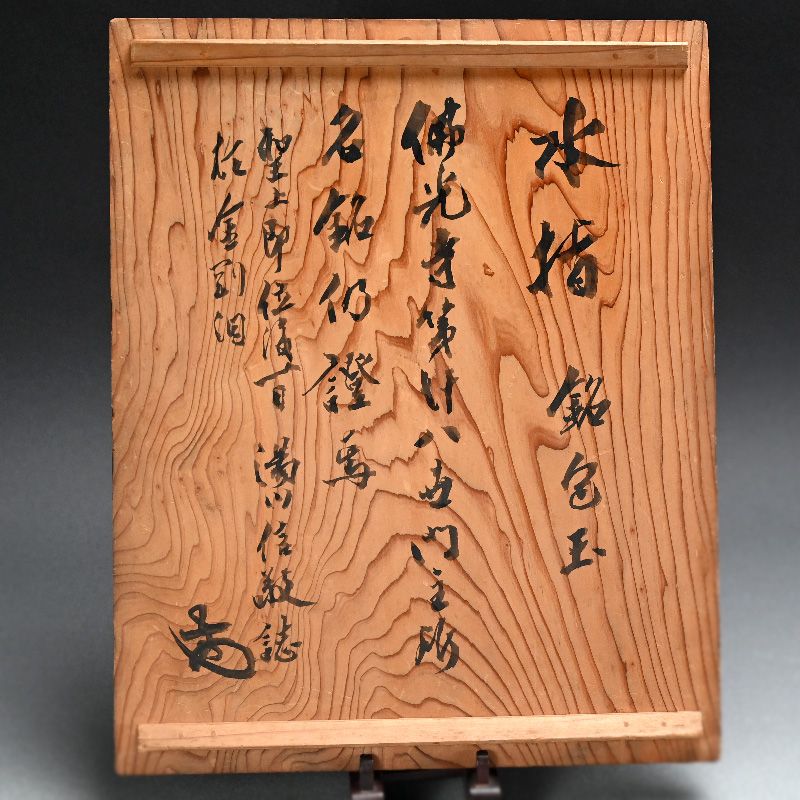 水指 銘 包玉
佛光寺第廿八世門主所
名銘仍證焉
聖上即位後一百 湯川信毅誌
於金剛泪